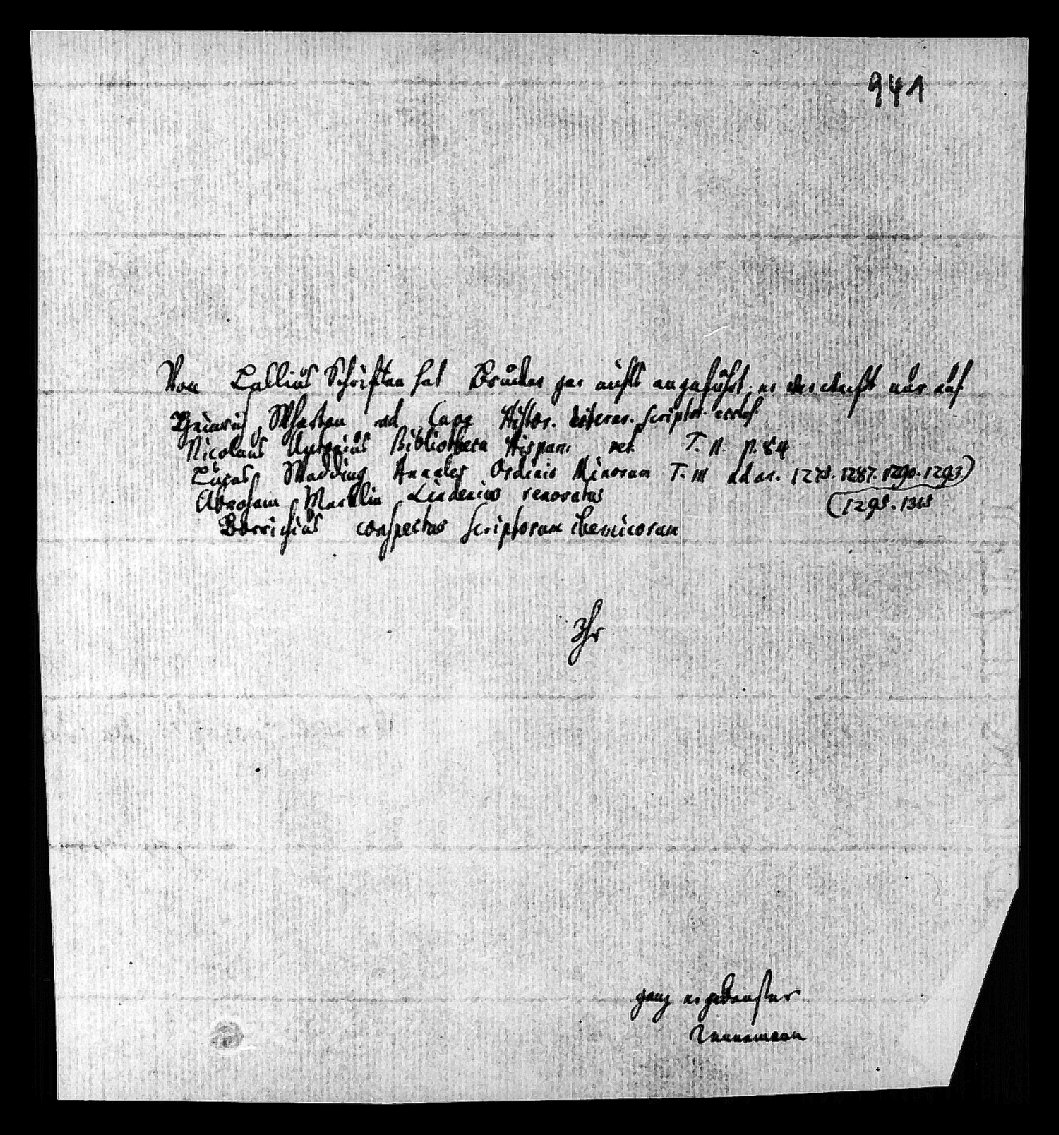 941
Von Lullius Schriften hat Brucker gar nichts angeführt, er verweist nur auf
Heinrich Wharton ad Cave Histor. literar. script. eccles
Nicolaus Antonius Bibliotheca Hispan. vet. T. II. p. 84
Lucas Wadding Annales Ordinis Minorum T. III ad an. 1275. 1287. 1290. 1293)
(1295. 1315
Abraham Merklin Lindenius renovatus
Borrichius conspectus Scriptorum chemicorum
Ihr
ganz ergebenster
Tennemann